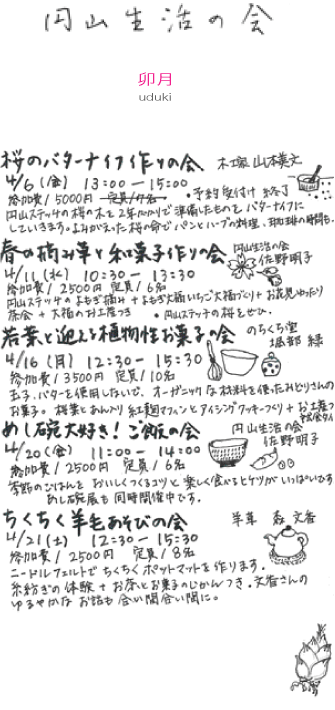 円山生活の会
卯月
uduki
桜のバターナイフ作りの会 木工家 山本美文
4/6(金) 13:00ー15:00
参加費/5000円 定員/10名 ・予約受付け終了
円山ステッチの桜の木を2年かかりで準備したものを、バターナイフに
していきます。よみがえった桜の命でパンとハーブの料理・珈琲の時間も。
春の摘み草り和菓子作りの会 円山生活の会
佐野明子
4/11(水) 10:30ー13:30
参加費/2500円 定員/6名
円山ステッチのよもぎ摘み+よもぎ大福いちご大福づくり+お花見ゆったり
茶会+大福のお土産つき ・円山ステッチの桜もぜひ
若葉を迎える植物性お菓子の会 のらくら堂
堀部 緑
4/16(月) 12:30ー15:30
参加費/3500円 定員/10名
玉子、バターを使用しないで、オーガニックな材料を使ったみどりさんの
お菓子。桜葉とあん入り紅麹マフィンとアイシングクッキーづくり+お土産つき
めし碗大好き!ご飯の会 円山生活の会
佐野明子
4/20(金) 11:00ー14:00
参加費/2500円 定員/6名
季節のごはんをおいしくつくるコツと楽しく食べるヒケツがいっぱいです
めし碗展も同時開催中です。
ちくちく羊毛あそびの会 羊草 森 文香
4/21(土) 12:30ー15:30
参加費/2500円 定員/8名
ニードルフェルトでちくちくポットマットを作ります。
糸紡ぎの体験+お茶とお菓子のじかんつき。文香さんの
ゆるやかなお話も合い間合い間に。